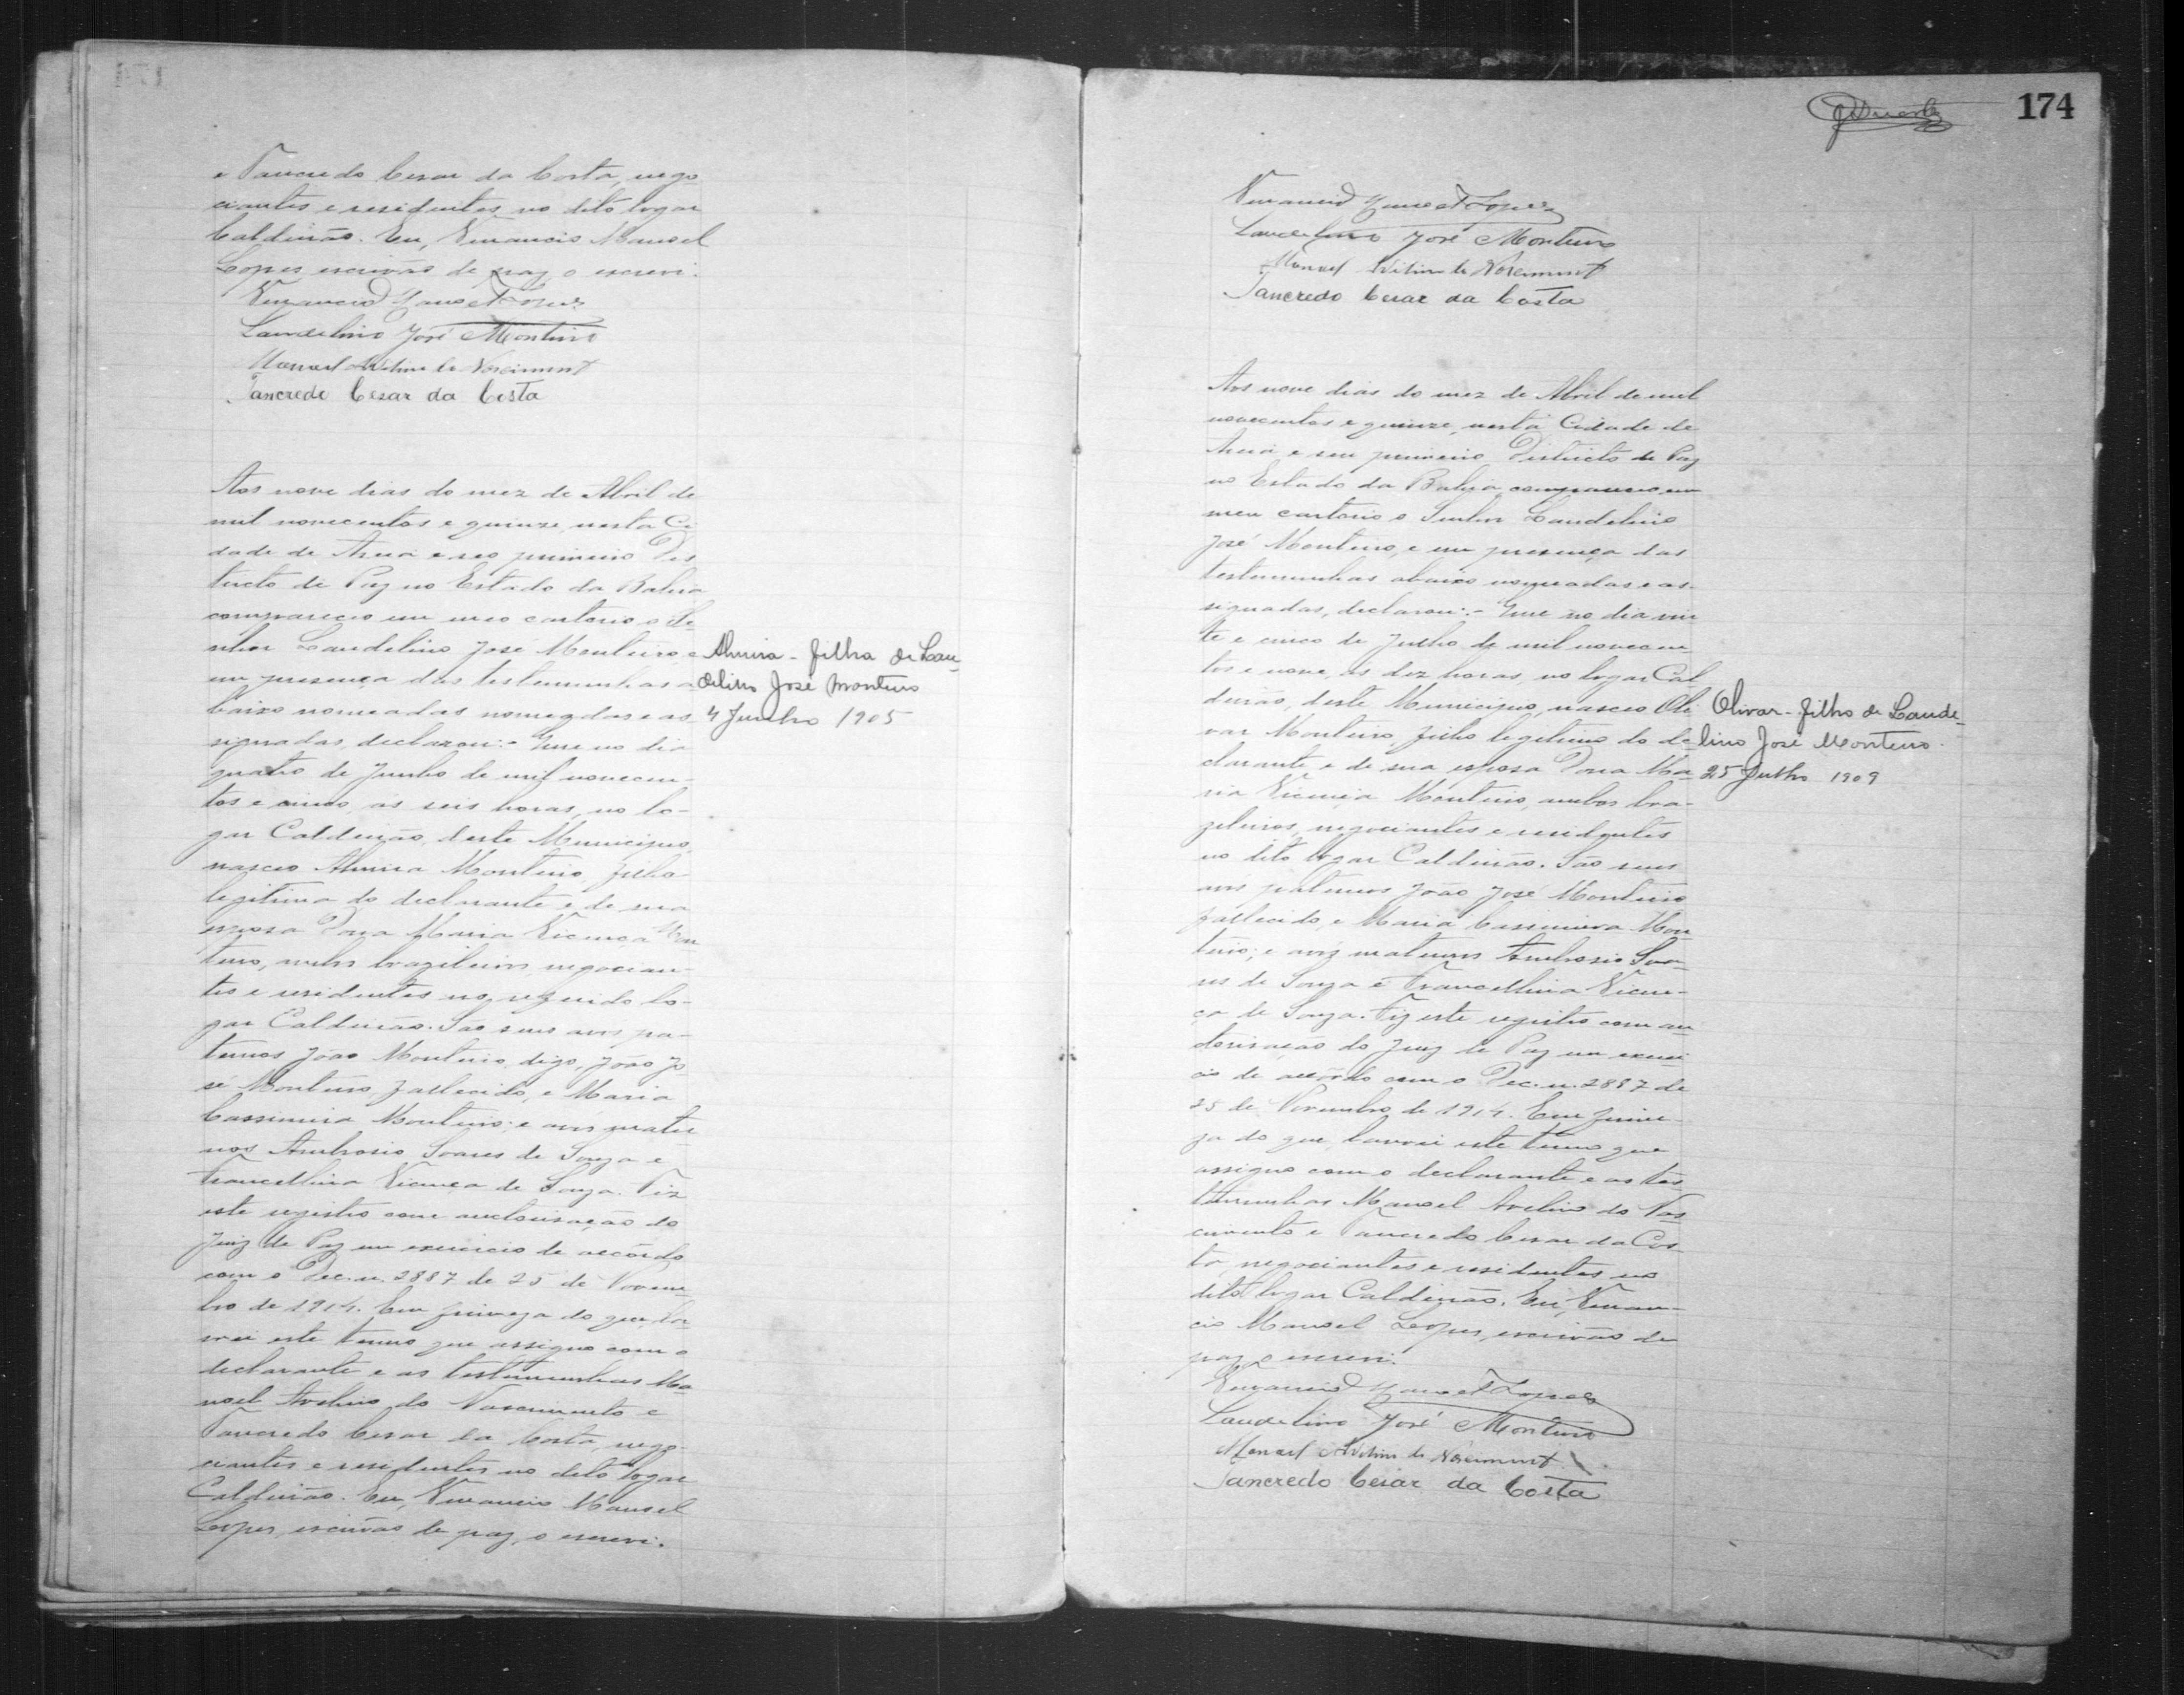 e Tancredo Cesar da Costa, nego
ciantes e residentes no dito logar
Caldeirão. Eu, Venancio Manoel
Lopes escrivão de paz o escrevi.
Venancio Manoel Lopes
Laudelino José Monteiro
Manoel Avelino do Nascimento
Tancredo Cesar da Costa
Aos nove dias do mez de Abril de
mil novecentos e quinze, nesta Ci
dade de Areia e seo primeiro Dis
tricto de Paz no Estado da Bahia
compareceo em meo cartorio o Se
nhor Laudelino José Monteiro e
em presença das testemunhas a
baixo nomeadas nomeadas e as
signadas, declarou:- Que no dia
quatro de Junho de mil novecen-
tos e cinco, as seis horas, no lo-
gar Caldeirão, deste Municipio,
nasceo Almira Monteiro, filha
legitima do declarante e de sua
esposa Dona Maria Vicencia Mon
teiro, ambos brazileiros, negocian-
tes e residentes no referido lo-
gar Caldeirão. São seus avos pa-
ternos João Monteiro, digo, João Jo
sé Monteiro, fallecido, e Maria
Cassimira Monteiro; e avos mater
nos Ambrosio Soares de Souza e
Francellina Vicença de Souza. Fiz
este registro com auctorisação do
Juiz de Paz em exercicio de accôrdo
com o Dec. n. 2887 de 25 de Novem-
bro de 1914. Em firmeza do que, la
vrei este termo que assigno com o
declarante e as testemunhas Ma
noel Avelino do Nascimento e
Tancredo Cesar da Costa, nego-
ciantes e residentes no dito logar
Caldeirão. Eu, Venancio Manoel
Lopes, escrivão de paz, o escrevi.
Almira - filha de Lau-
delino José Monteiro
4 Junho 1905
174
Venancio Manoel Lopes
Laudelino José Monteiro
Manoel Avelino do Nascimento
Tancredo Cesar da Costa
Aos nove dias do mez de Abril de mil
novecentos e quinze, nesta Cidade de
Areia e seu primeiro Districto de Paz
no Estado da Bahia, compareceo em
meu cartorio o Senhor Laudelino
José Monteiro, e em presença das
testemunhas abaixo nomeadas e as-
signadas, declarou:- Que no dia vin
te e cinco de Julho de mil novecen-
tos e nove, ás dez horas, no logar Cal
deirão, deste Municipio, nasceo Oli
var Monteiro, filho legitimo do de
clarante e de sua esposa Dona Ma
ria Vicencia Monteiro, ambos bra-
zileiros, negociantes e residentes
no dito logar Caldeirão. São seus
avos paternos João José Monteiro
fallecido, e Maria Cassimira Mon
teiro; e avós maternos Ambrosio Soa-
res de Souza e Francellina Vicen-
ça de Souza. Fiz este registro com au
ctorisação do Juiz de Paz em exerci
cio de accôrdo com o Dec. n. 2887 de
25 de Novembro de 1914. Em firme-
za do que, lavrei este termo que
assigno com o declarante e as tes
temunhas Manoel Avelino do Nas
cimento e Tancredo Cesar da Cos-
ta, negociantes e residentes no
dito logar Caldeirão. Eu, Venan-
cio Manoel Lopes, escrivão de
paz o escrevi.
Venancio Manoel Lopes
Laudelino José Monteiro
Manoel Avelino do Nascimento
Tancredo Cesar da Costa
Olivar - filho de Laude-
lino José Monteiro.
25 Julho 1909